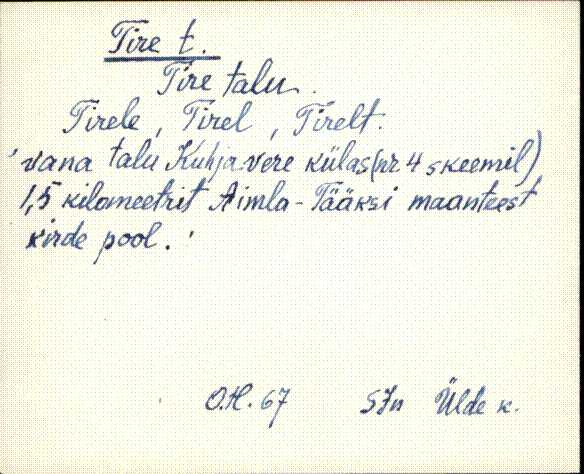 Tire t.
Tire talu.
Tirele, Tirel, Tirelt.
'vana talu Kuhjavere külas (nr 4 skeemil),
1,5 kilomeetrit Aimla-Tääksi maanteest
kirde pool.'
O.H. 67 SJn Ülde k.